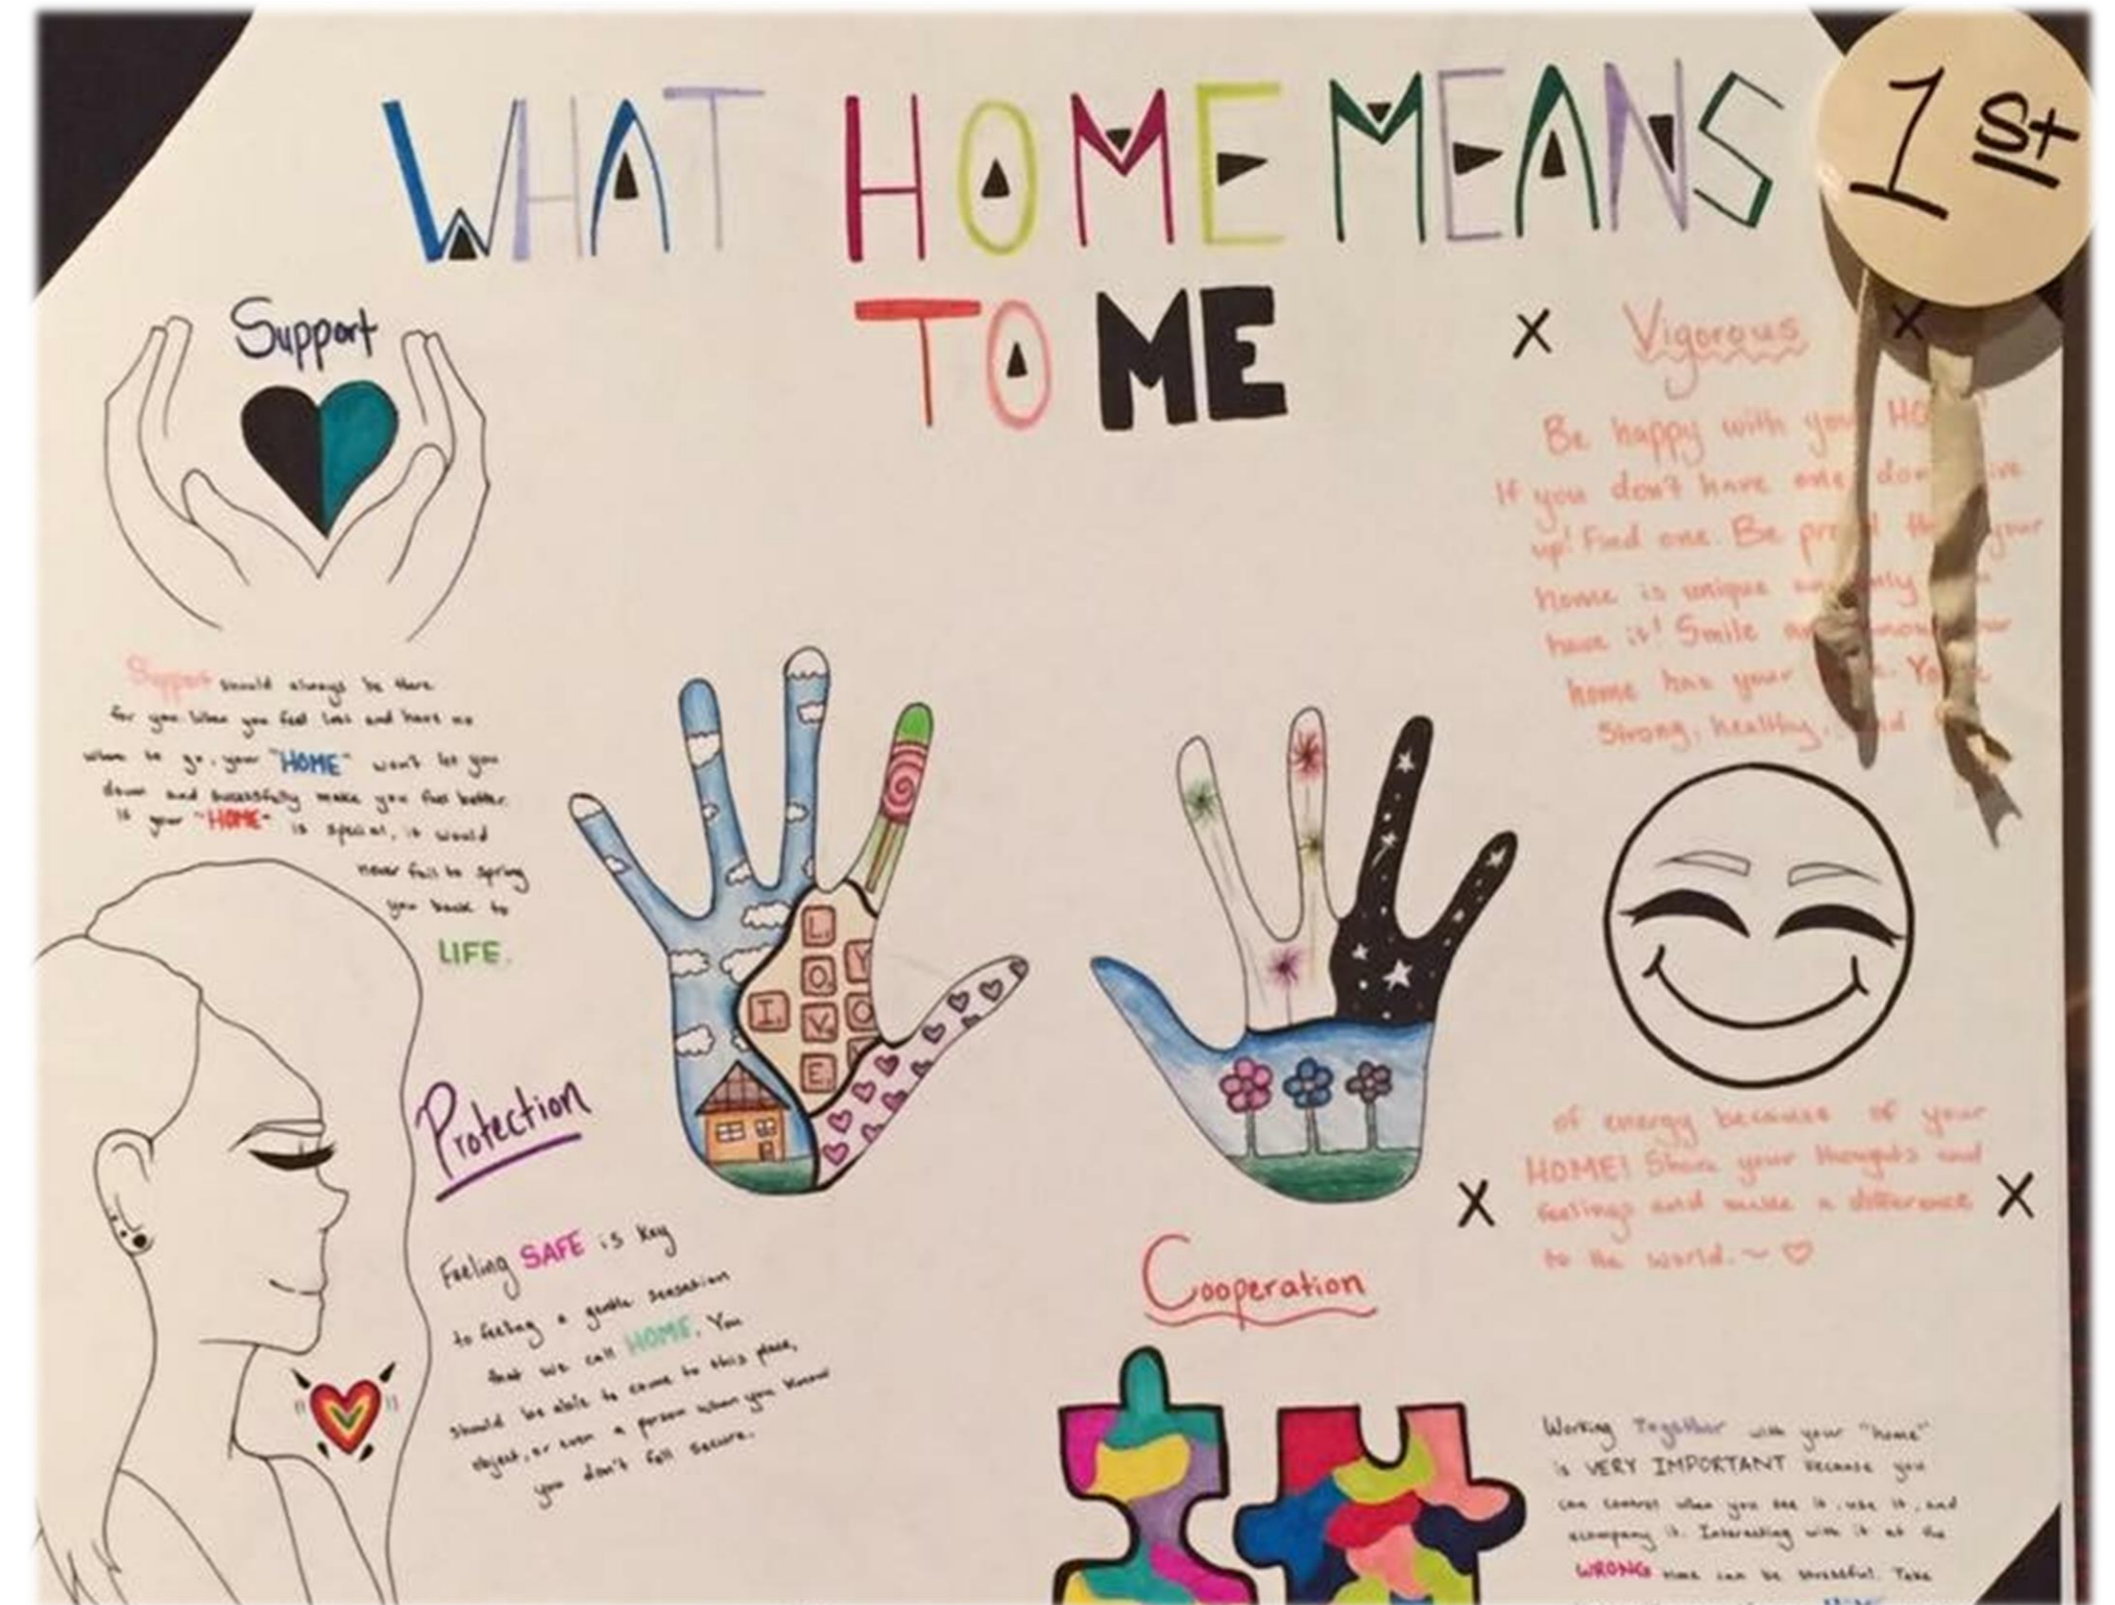 WHAT HOME MEANS
TO ME
1st
Support
Support should always be there
for you. When you feel loss and have no
where to go, your "HOME" won't let you
down and sucessfully make you feel better.
is your "HOME" is special, it would
never fail to spring
you back to
LIFE.
Protection
Feeling SAFE is key
to feeling a gentle sensation
that we call HOME. You
should be able to come to this place,
object, or even a person when you know
you don't fell secure.
I LOVE YO
Vigorous
Be happy with your HO
If you don't have one, don
up! Find one. Be your
home is unique
have it! Smile
home has your
Strong, healthy,
of energy because of your
HOME! Share your thoughts and
feelings and make a difference
to the world. ~ ♡
Cooperation
Working Together with your "home"
is VERY IMPORTANT because you
can control when you see it, use it, and
acompany it. Interacting with it at the
WRONG time can be stressful. Take